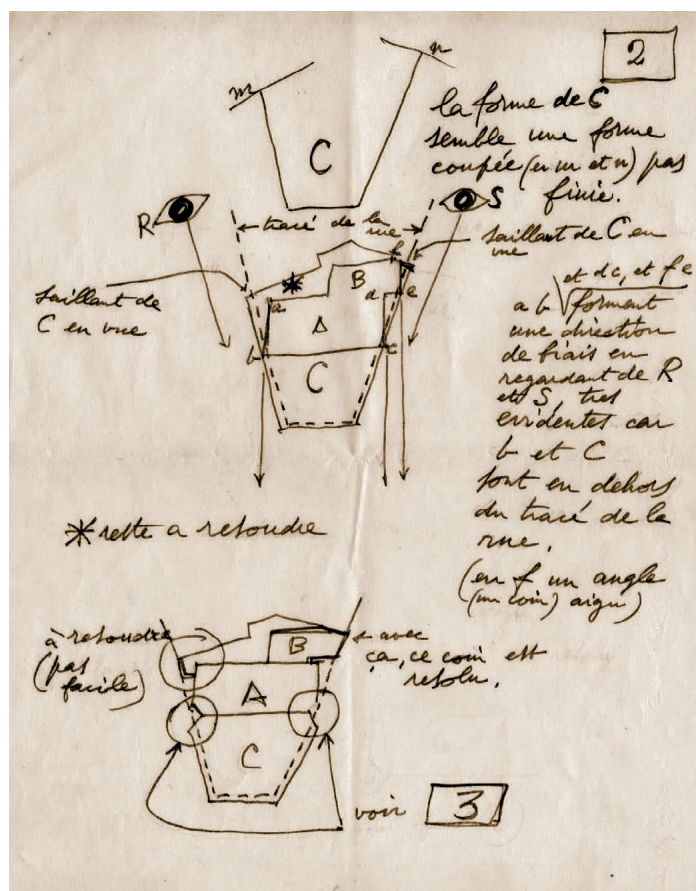 2
m
n
C
la forme de C
semble une forme
coupée (en m et n) pas
finie.
R
S
tracé de la
rue
saillant de C en
vue
saillant de
C en vue
a
B
f
d
e
A
b
c
C
et dc, et fe
a b forment
une direction
de biais en
regardant de R
et S, tres
evidentes car
b et C
sont en dehors
du tracé de la
rue.
(en f un angle
(un coin) aigu)
* reste a resoudre
à resoudre
(pas
facile)
B
A
C
avec
ça, ce coin est
resolu.
voir 3